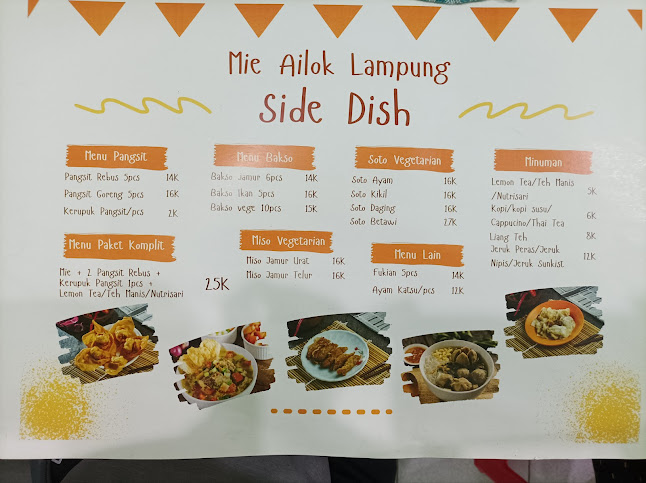 Mie Ailok Lampung
Side Dish
Menu Pangsit
Pangsit Rebus 5pcs 14K
Pangsit Goreng 5pcs 16K
Kerupuk Pangsit/pcs 2K
Menu Bakso
Bakso Jamur 6pcs 14K
Bakso Ikan 5pcs 16K
Bakso vege 10pcs 15K
Soto Vegetarian
Soto Ayam 16K
Soto Kikil 16K
Soto Daging 16K
Soto Betawi 27K
Minuman
Lemon Tea/Teh Manis
/Nutrisari 5K
Kopi/kopi susu/
Cappucino/Thai Tea 6K
Liang Teh 8K
Jeruk Peras/Jeruk
Nipis/Jeruk Sunkist 12K
Menu Paket Komplit
Mie + 2 Pangsit Rebus +
Kerupuk Pangsit 1pcs +
Lemon Tea/Teh Manis/Nutrisari 25K
Miso Vegetarian
Miso Jamur Urat 16K
Miso Jamur Telur 16K
Menu Lain
Fukian 5pcs 14K
Ayam Katsu/pcs 12K